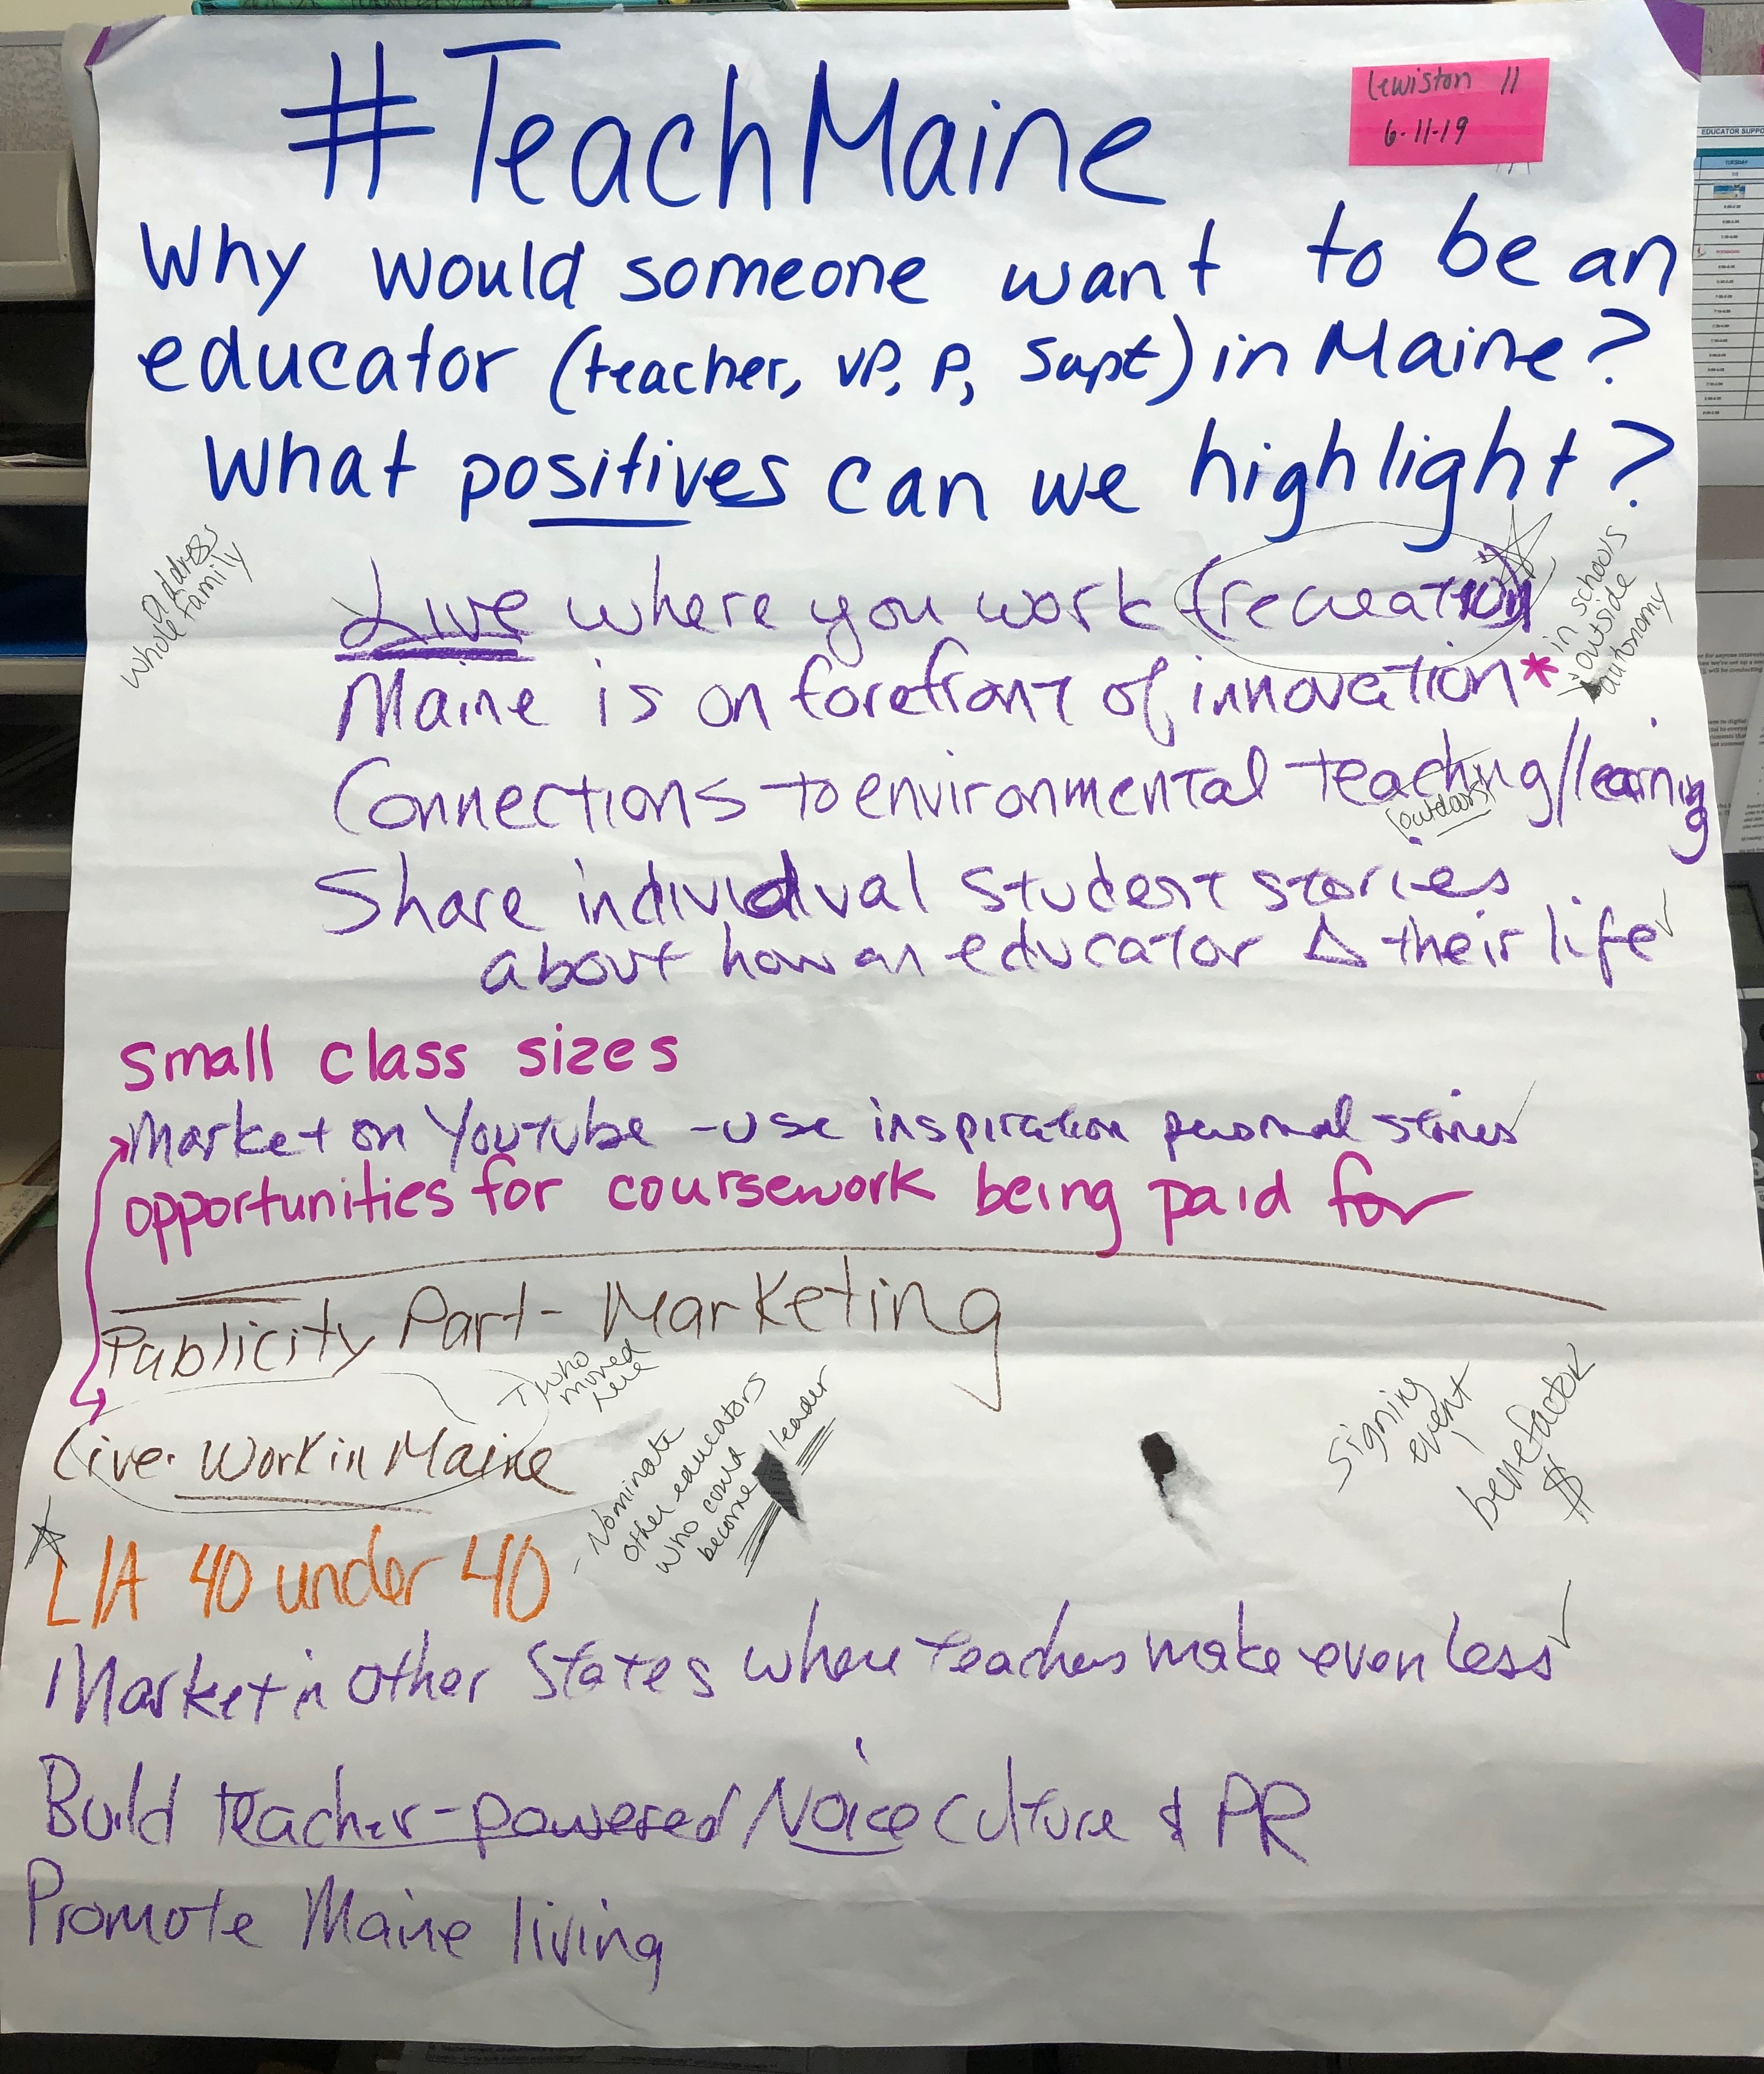 #TeachMaine
Lewiston 11
6-11-19
Why would someone want to be an
educator (teacher, VP, P, Supt) in Maine?
What positives can we highlight?
address
whole family
Live where you work (recreation)
in schools
outside
autonomy
Maine is on forefront of innovation*
Connections to environmental teaching/learning
(outdoors)
Share individual student stories
about how an educator Δ their life ✓
small class sizes
Market on YouTube - use inspiration personal stories ✓
opportunities for coursework being paid for
Publicity Part - Marketing
who
moved
here
Live. Work in Maine
- Nominate
other educators
who could
become leader
signing
event
benefactor
$
L/A 40 under 40
Market in other States where teachers make even less ✓
Build teacher-powered/Voice culture & PR
Promote Maine living
EDUCATOR SUPPO
TUESDAY